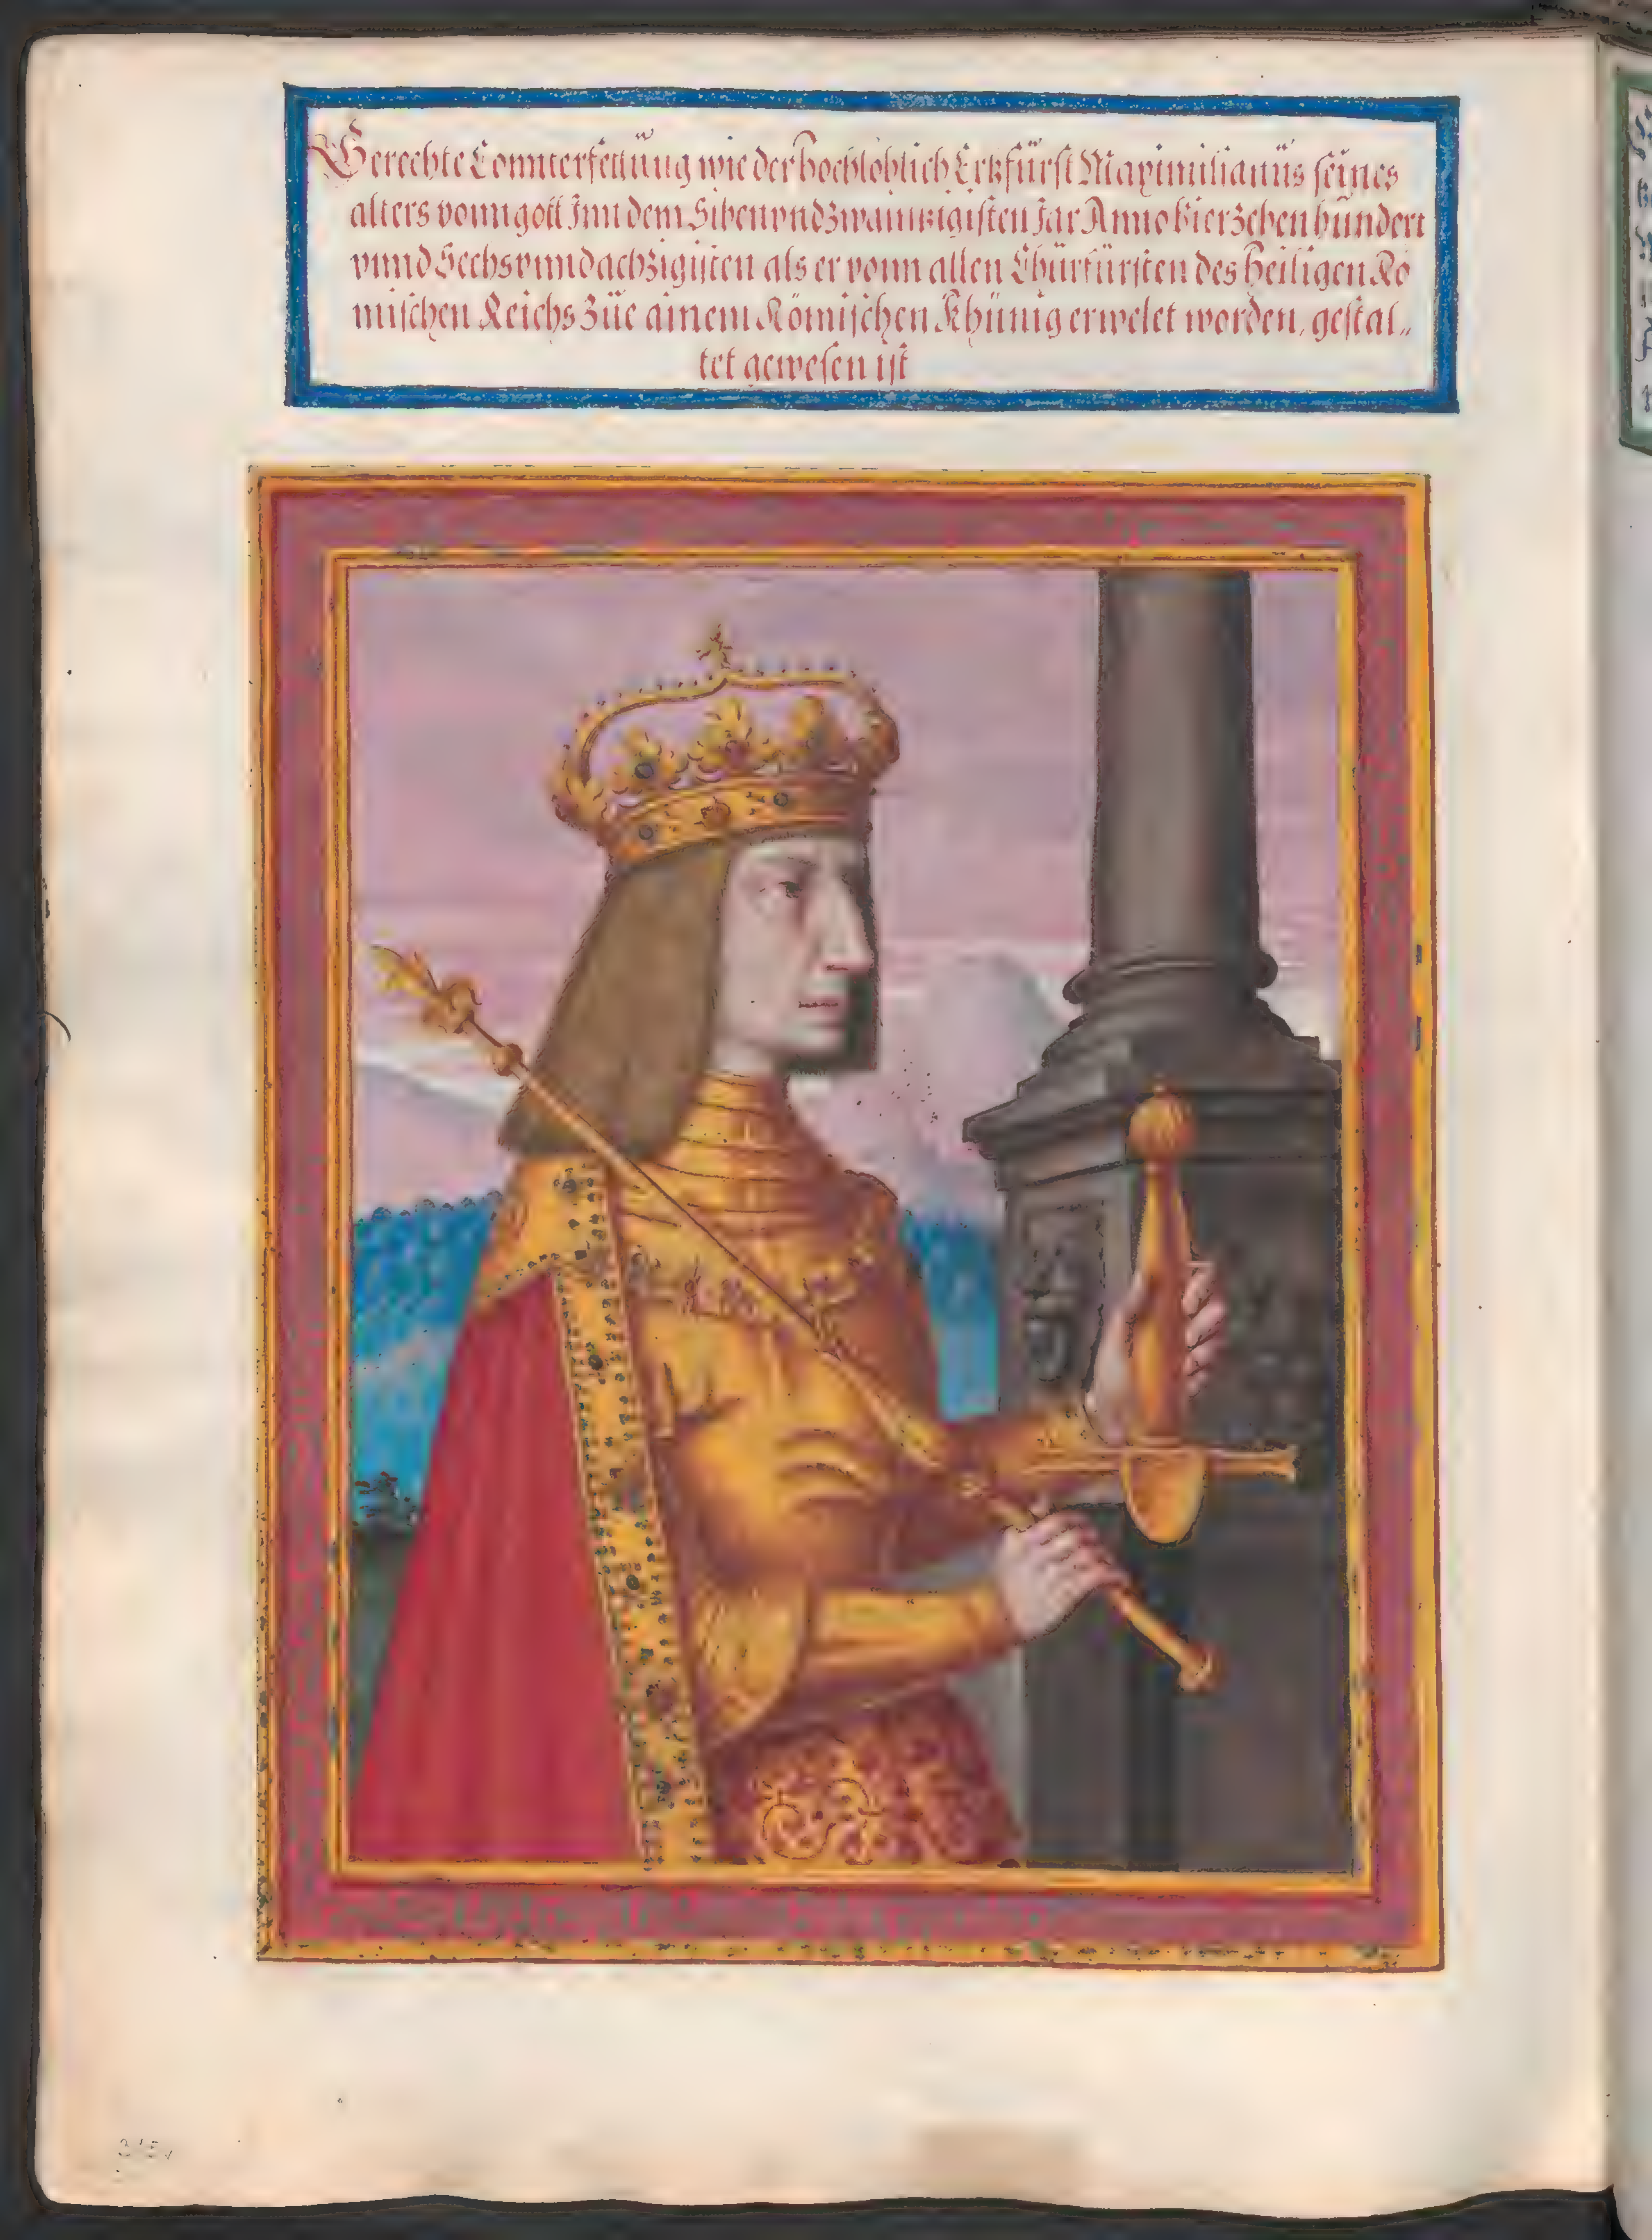 Gerechte Connterfettüng wie der hochloblich Ertzfürst Maximilianüs seines
alters vonn gott Inn dem Sibenvndzwaintzigisten Jar Anno Vierzehenhündert
vnnd Sechsvnndachzigisten als er vonn allen Chürfürsten des heiligen Rö
mischen Reichs züe ainem Römischen Khünig erwelet worden, gestal„
tet gewesen ist